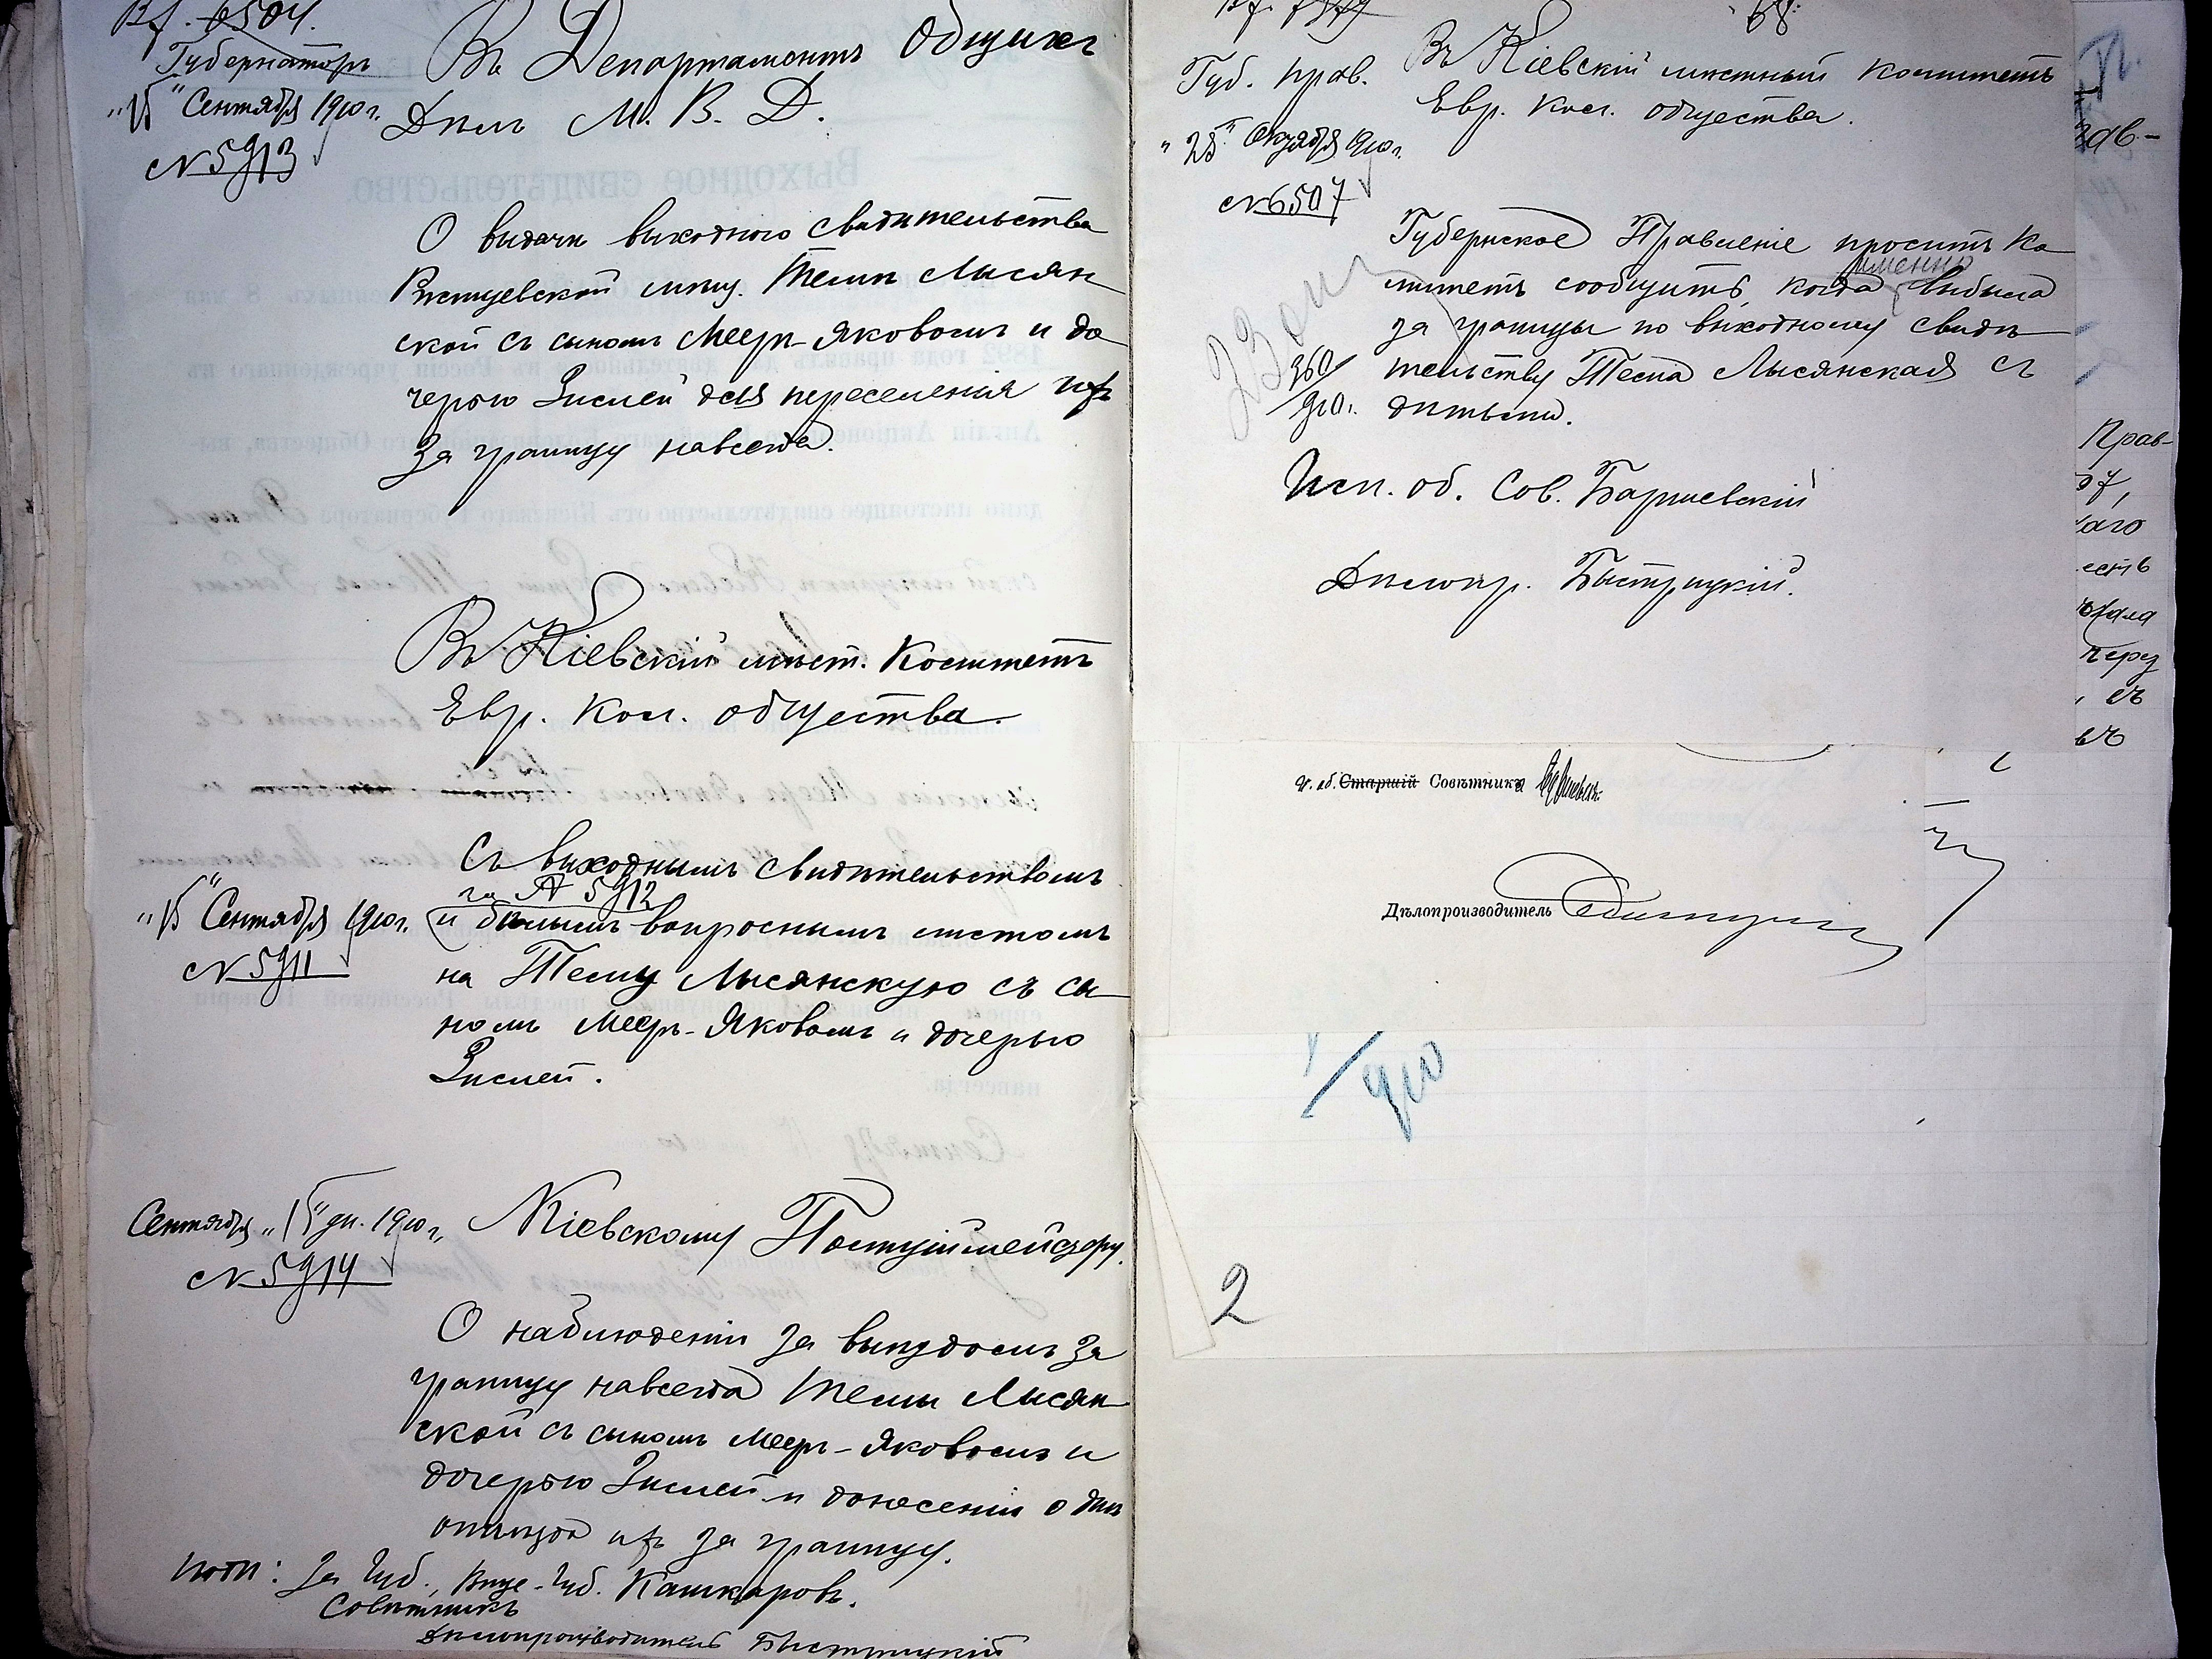 Вх. 6504.
Губернаторъ
"15" Сентября 1910 г.
№ 5913
Въ Департаментъ Общихъ
Дѣлъ М. В. Д.
О выдачѣ выходного свидѣтельства
мѣщ. Темѣ Лысян
ской съ сыномъ Меер-Яковомъ и до
черью Зислей для переселенія ихъ
за границу навсегда.
Въ Кіевскій мѣст. Комитетъ
Евр. Кол. общества.
"15" Сентября 1910 г.
№ 5911
Съ выходнымъ свидѣтельствомъ
за № 5912
и бѣлымъ вопроснымъ листомъ
на Тему Лысянскую съ сы
номъ Меер-Яковомъ и дочерью
Зислей.
Сентября "15" дн. 1910 г.
№ 5914
Кіевскому Полицiймейстеру.
О наблюденіи за выѣздомъ за
границу навсегда Темы Лысян
ской съ сыномъ Меер-Яковомъ и
дочерью Зислей и донесеніи о днѣ
отъѣзда ихъ за границу.
подп: За Губ., Вице-Губ. Кашкаровъ.
Совѣтникъ
Дѣлопроизводитель Быстрицкій
68.
Губ. Прав.
"25" Октября 1910 г.
№ 6507
Въ Кіевскій мѣстный Комитетъ
Евр. Кол. общества.
Губернское Правленіе проситъ Ко
именно
митетъ сообщить, когда выбыла
за границу по выходному свидѣ
тельству Тема Лысянская съ
дѣтьми.
360/910.
Исп. об. Сов.
Дѣлопр. Быстрицкій.
И. об. Старшій Совѣтника
Дѣлопроизводитель
/910
2
Прав-
аго
есть
через
съ